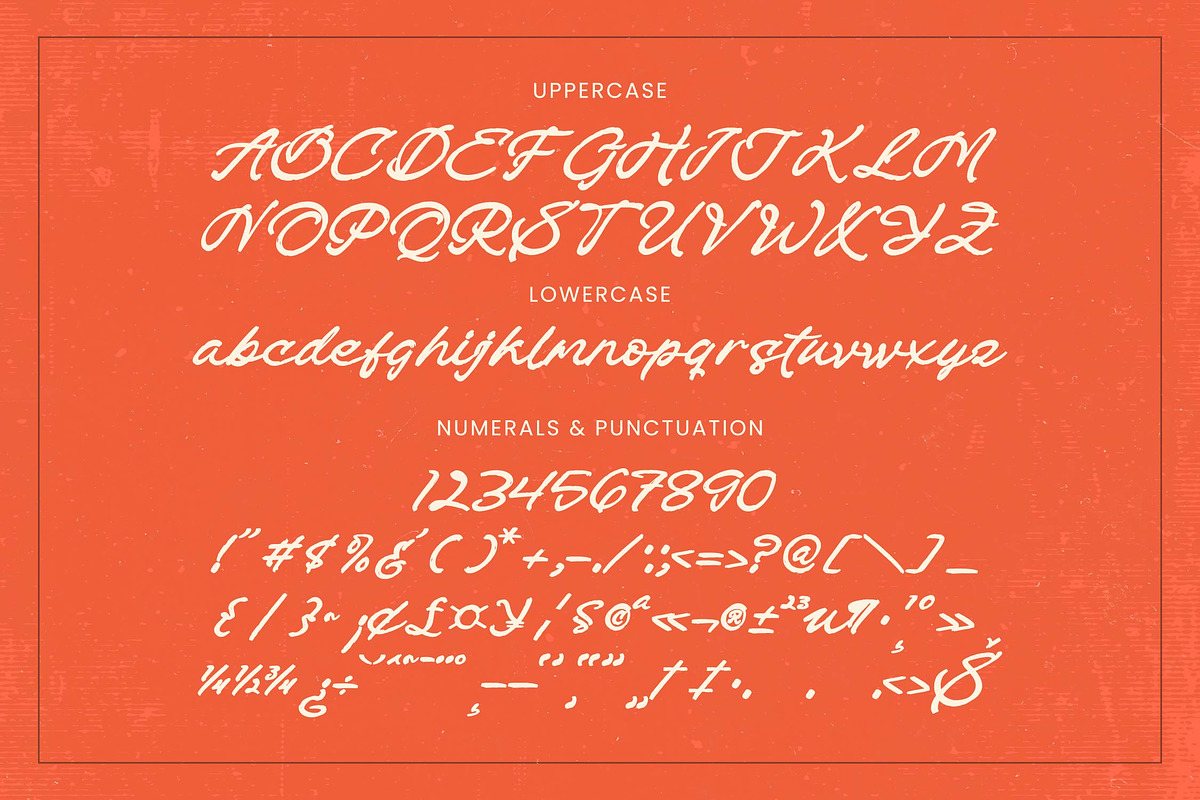 UPPERCASE
ABCDEFGHIJKLM
NOPQRSTUVWXYZ
LOWERCASE
abcdefghijklmnopqrstuvwxyz
NUMERALS & PUNCTUATION
1234567890
!"#$%&'()*+,-./:;<=>?@[\]_
{|}~¡¢£¤¥¦§©ª«¬®±²³µ¶·¸¹º»
¼½¾¿÷ –— ‚ „†‡•. . .‹›Š